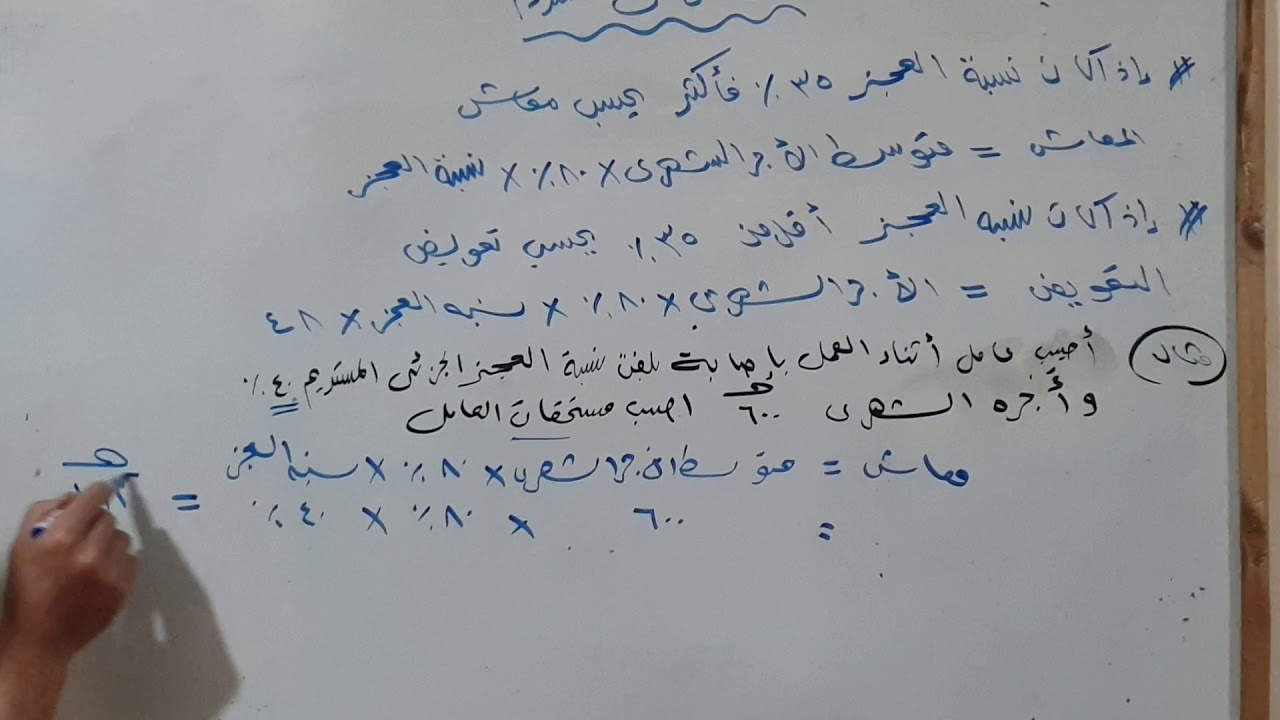 # إذا كانت نسبة العجز ٣٥٪ فأكثر يحسب معاش
المعاش = متوسط الأجر الشهرى × ٨٠٪ × نسبة العجز
# إذا كانت نسبه العجز أقل من ٣٥٪ يحسب تعويض
التعويض = الأجر الشهرى × ٨٠٪ × نسبه العجز × ٤٨
مثال أصيب عامل أثناء العمل بإصابة بلغت نسبة العجز الجزئى المستديم ٤٠٪
وأجره الشهرى ٦٠٠ جـ احسب مستحقات العامل
معاش = متوسط الأجر الشهرى × ٨٠٪ × نسبه العجز
= ٦٠٠ × ٨٠٪ × ٤٠٪ =